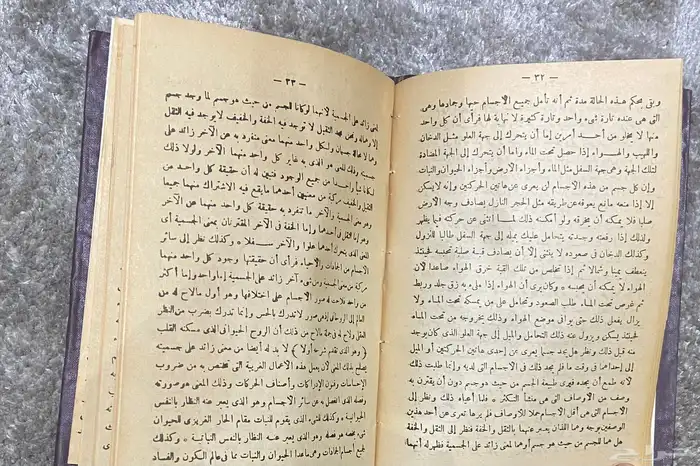 — ٣٢ —
وبقى بحكم هذه الحالة مدة ثم أنه تأمل جميع الاجسام حيها وجمادها وهى
التى هى عنده تارة شىء واحد وتارة كثيرة كثرة لا نهاية لها فرأى أن كل واحد
منها لا يخلو من أحد أمرين إما أن يتحرك إلى جهة العلو مثل الدخان
واللهيب والهواء إذا حصل تحت الماء وإما أن يتحرك إلى الجهة المضادة
لتلك الجهة وهى جهة السفل مثل الماء وأجزاء الارض وأجزاء الحيوان والنبات
وإن كل جسم من هذه الاجسام لن يعرى عن هاتين الحركتين وأنه لا يسكن
إلا إذا منعه مانع يعوقه عن طريقه مثل الحجر النازل يصادف وجه الارض
صلبا فلا يمكنه أن يخرقه ولو أمكنه ذلك لما انثنى عن حركته فيما يظهر
ولذلك إذا رفعته وجدته يتحامل عليك بميله إلى جهة السفل طالبا للنزول
وكذلك الدخان فى صعوده لا ينثنى إلا أن يصادف قبة صلبة تحبسه فحينئذ
ينعطف يمينا وشمالا ثم إذا تخلص من تلك القبة خرق الهواء صاعدا لان
الهواء لا يمكنه أن يحبسه وكان يرى أن الهواء إذا ملىء به زق جلد وربط
ثم غوص تحت الماء طلب الصعود وتحامل على من يمسكه تحت الماء ولا
يزال يفعل ذلك حتى يوافى موضع الهواء وذلك بخروجه من تحت الماء
فحينئذ يسكن ويزول عنه ذلك التحامل والميل إلى جهة العلو الذى كان يوجد
منه قبل ذلك ونظر هل يجد جسما يعرى عن إحدى هاتين الحركتين أو الميل
إلى إحداهما فى وقت ما فلم يجد ذلك فى الاجسام التى لديه وإنما طلبت ذلك
لانه طمع أن يجده فيرى طبيعة الجسم من حيث هو جسم دون أن يقترن به
وصف من الاوصاف التى هى منشأ التكثر • فلما أعياه ذلك ونظر إلى
الاجسام التى هى أقل الاجسام حملا للاوصاف فلم يرها تعرى عن أحد هذين
الوصفين بوجه وهما اللذان يعبر عنهما بالثقل والخفة فنظر إلى الثقل والخفة
هل هما للجسم من حيث هو جسم أو هما لمعنى زائد على الجسمية فظهر له أنهما
— ٣٣ —
لمعنى زائد على الجسمية لانهما لو كانا للجسم من حيث هو جسم لما وجد جسم
إلا وهما له ونحن نجد الثقيل لا توجد فيه الخفة والخفيف لا يوجد فيه الثقل
وهما لا محالة جسمان ولكل واحد منهما معنى منفرد به عن الآخر زائد على
جسميته وذلك المعنى هو الذى به غاير كل واحد منهما الآخر ولولا ذلك
لكانا شيئا واحدا من جميع الوجوه فتبين له أن حقيقة كل واحد من
الثقيل والخفيف مركبة من معنيين أحدهما ما يقع فيه الاشتراك منهما جميعا
وهو معنى الجسمية والآخر ما تنفرد به حقيقة كل واحد منهما عن الآخر
وهو إما الثقل فى أحدهما وإما الخفة فى الآخر المقترنان بمعنى الجسمية أى
المعنى الذى يحرك أحدهما علوا والآخر سفلا • وكذلك نظر إلى سائر
الاجسام من الجمادات والاحياء فرأى أن حقيقة وجود كل واحد منهما
مركبة من معنى الجسمية ومن شىء آخر زائد على الجسمية إما واحد وإما أكثر
من واحد فلاحت له صور الاجسام على اختلافها وهو أول ما لاح له من
العالم الروحانى إذ هى صور لا تدرك بالحس وإنما تدرك بضرب من النظر
العقلى ولاح له فى جملة ما لاح من ذلك أن الروح الحيوانى الذى مسكنه القلب
(وهو الذى تقدم شرحه أولا) لا بد له أيضا من معنى زائد على جسميته
يصلح بذلك المعنى لان يعمل هذه الاعمال الغريبة التى تختص به من ضروب
الاحساسات وفنون الادراكات وأصناف الحركات وذلك المعنى هو صورته
وفصله الذى انفصل به عن سائر الاجسام وهو الذى يعبر عنه النظار بالنفس
الحيوانية • وكذلك للشىء الذى يقوم للنبات مقام الحار الغريزى للحيوان
شىء يخصه هو فصله وهو الذى يعبر عنه النظار بالنفس النباتية • وكذلك
لجميع أجسام الجمادات وهى ما عدا الحيوان والنبات مما فى عالم الكون والفساد